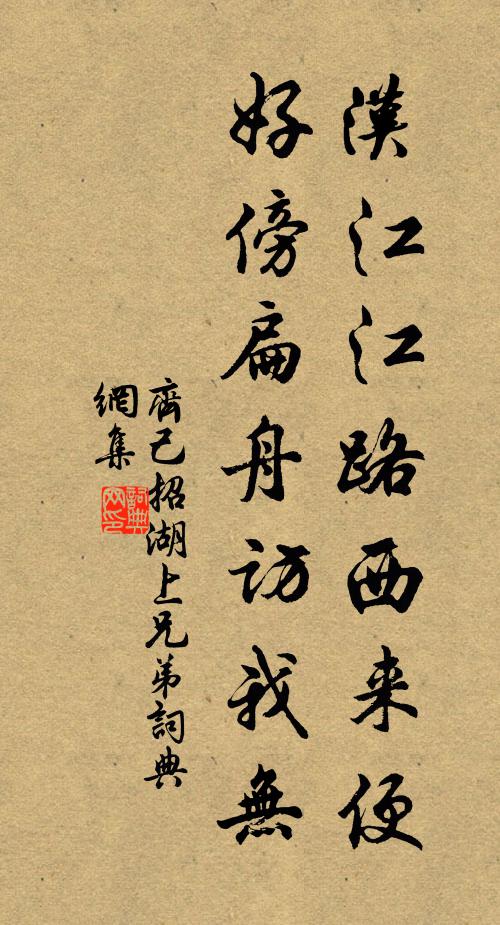 漢江江路西来便
好傍扁舟訪我無
齊己招湖上兄弟詞典
網集
詞典
网印